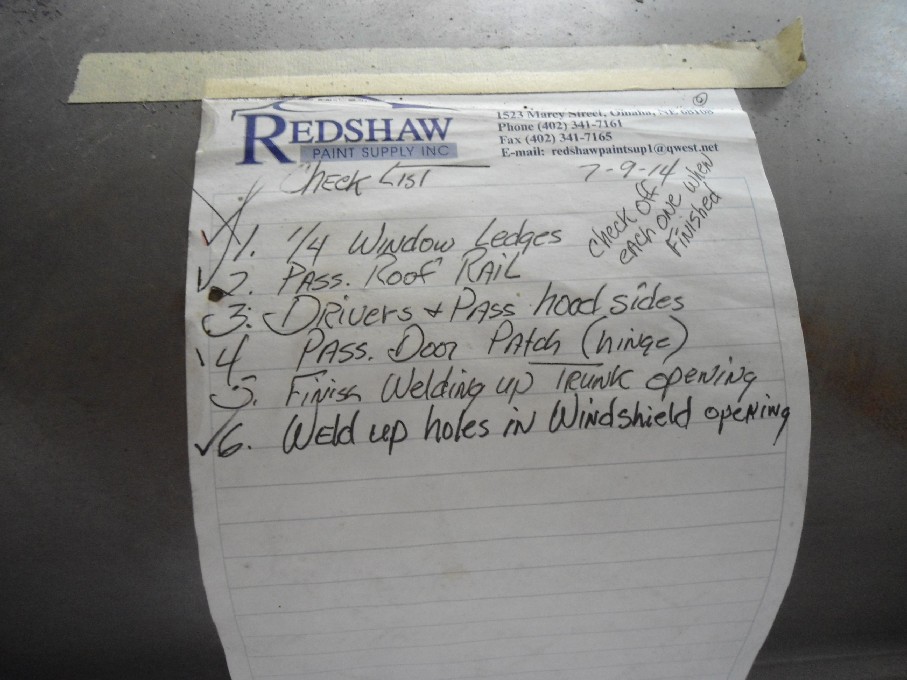 REDSHAW
PAINT SUPPLY INC
1523 Marcy Street, Omaha, NE 68108
Phone (402) 341-7161
Fax (402) 341-7165
E-mail: redshawpaintsup1@qwest.net
CHECK LIST
7-9-14
Check off
each one when
Finished
1. 1/4 WINDOW Ledges
2. PASS. ROOF RAIL
3. DRIVERS + PASS hood sides
4 PASS. DOOR PATCh (hinge)
5. FINISH Welding up TRUNK opening
6. WELD up holes in WINdshield opeNINg